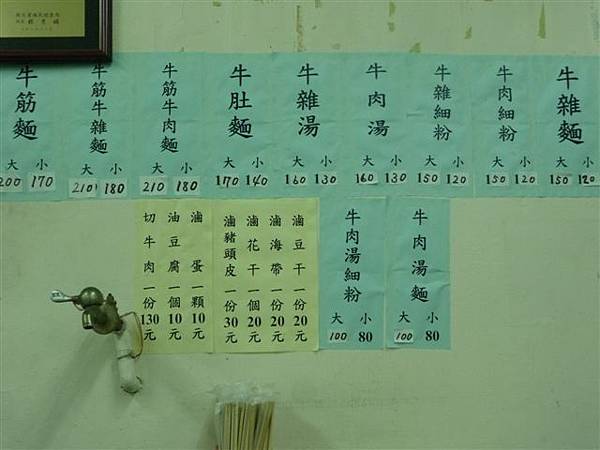 牛雜麵
大 小
150 120
牛肉細粉
大 小
150 120
牛雜細粉
大 小
150 120
牛肉湯
大 小
160 130
牛雜湯
大 小
160 130
牛肚麵
大 小
170 140
牛筋牛肉麵
大 小
210 180
牛筋牛雜麵
大 小
210 180
牛筋麵
大 小
200 170
牛肉湯麵
大 小
100 80
牛肉湯細粉
大 小
100 80
滷豆干一份20元
滷海帶一份20元
滷花干一個20元
滷豬頭皮一份30元
滷蛋一顆10元
油豆腐一個10元
切牛肉一份130元